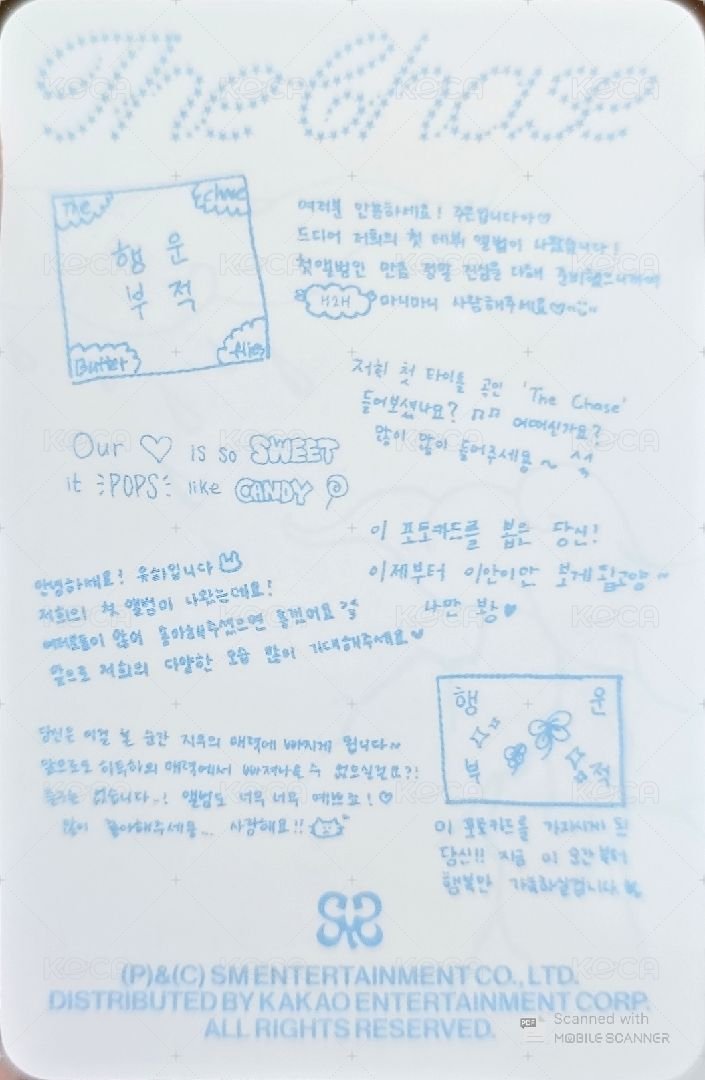 The Chase
The
Chase
행 운
부 적
Butter
flies
여러분 안뇽하세요! 주은입니다아♡
드디어 저희의 첫 데뷔 앨범이 나왔습니다!
첫 앨범인 만큼 정말 진심을 다해 준비했으니까여
H2H 마니마니 사랑해주세요♡
저희 첫 타이틀 곡인 'The Chase'
들어보셨나요? ♫♫ 어떠신가요?
많이 많이 들어주세용~ ^^
Our ♡ is so SWEET
it POPS like CANDY
이 포토카드를 뽑은 당신!
이제부터 이안이만 보게 됩고양~
나만 봥♥
안녕하세요! 유하입니다
저희의 첫 앨범이 나왔는데요!
여러분들이 많이 좋아해주셨으면 좋겠어요
앞으로 저희의 다양한 모습 많이 기대해주세요♥
행 운
부 적
당신은 이걸 본 순간 지우의 매력에 빠지게 됩니다~
앞으로도 하투하의 매력에서 빠져나올 수 없으실걸요?!
출구는 없습니다..! 앨범도 너무 너무 예쁘죠!♡
많이 좋아해주세용... 사랑해요!!
이 포토카드를 가지시게 된
당신!! 지금 이 순간부터
행복만 가득하실겁니다
(P)&(C) SM ENTERTAINMENT CO., LTD.
DISTRIBUTED BY KAKAO ENTERTAINMENT CORP.
ALL RIGHTS RESERVED.
PDF Scanned with
MOBILE SCANNER
KOCA